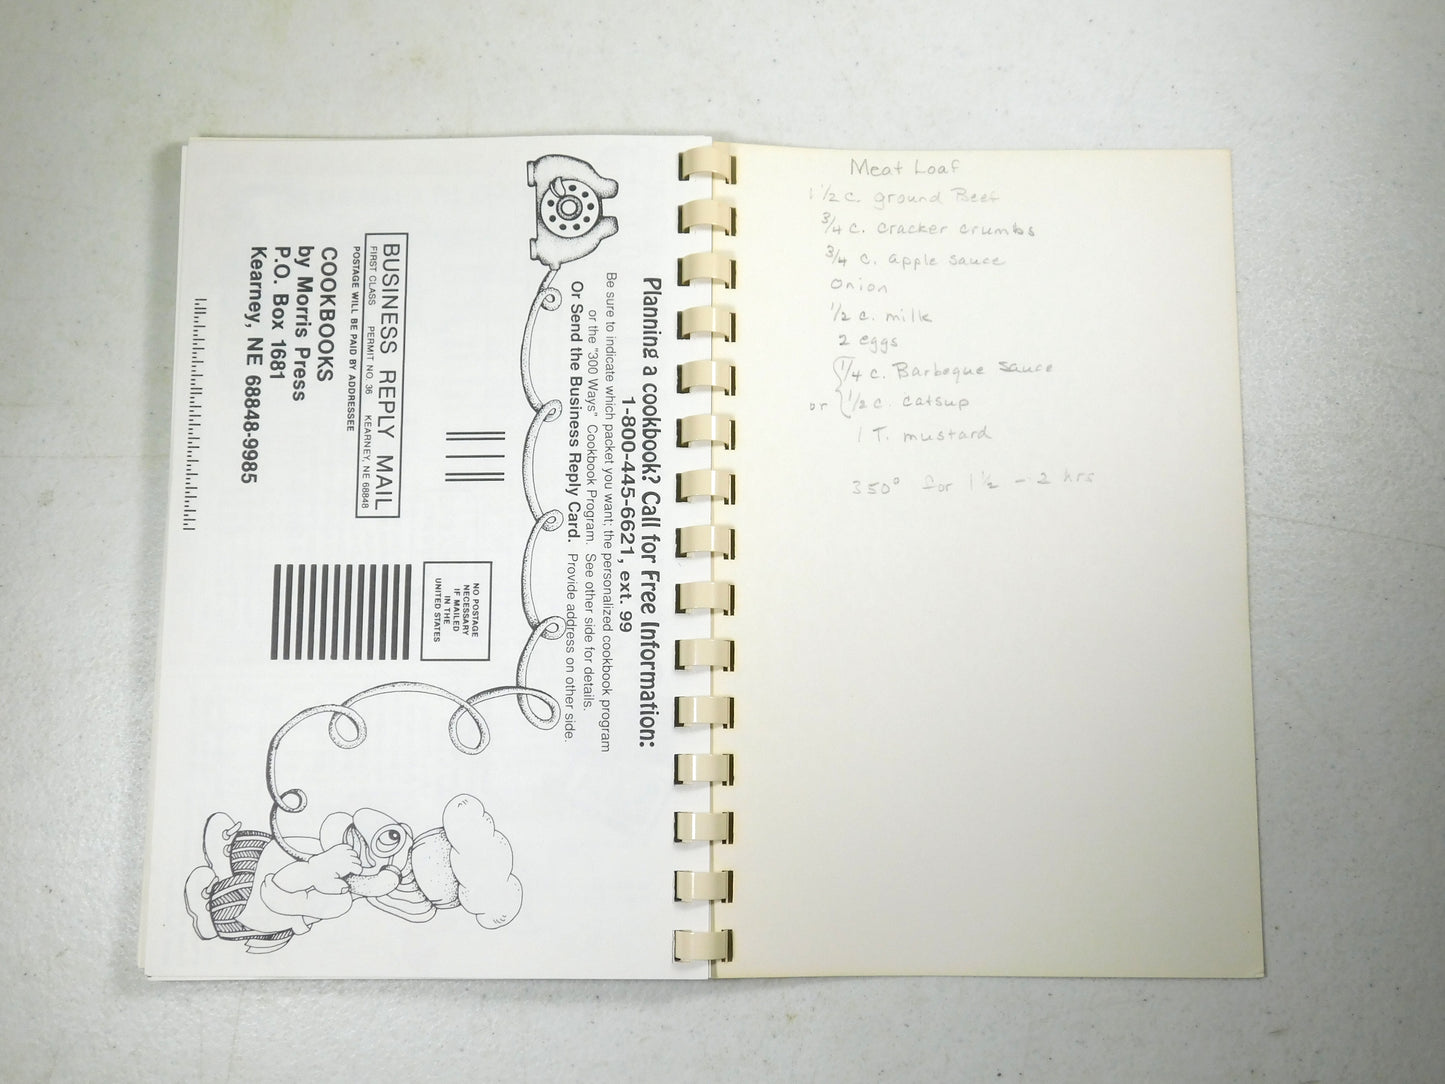 Planning a cookbook? Call for Free Information:
1-800-445-6621, ext. 99
Be sure to indicate which packet you want; the personalized cookbook program
or the "300 Ways" Cookbook Program. See other side for details.
Or Send the Business Reply Card. Provide address on other side.
NO POSTAGE
NECESSARY
IF MAILED
IN THE
UNITED STATES
BUSINESS REPLY MAIL
FIRST CLASS PERMIT NO. 36 KEARNEY, NE 68848
POSTAGE WILL BE PAID BY ADDRESSEE
COOKBOOKS
by Morris Press
P.O. Box 1681
Kearney, NE 68848-9985
Meat Loaf
1 1/2 c. ground Beef
3/4 c. cracker crumbs
3/4 c. apple sauce
onion
1/2 c. milk
2 eggs
1/4 c. Barbeque sauce
or 1/2 c. catsup
1 T. mustard
350° for 1 1/2 - 2 hrs